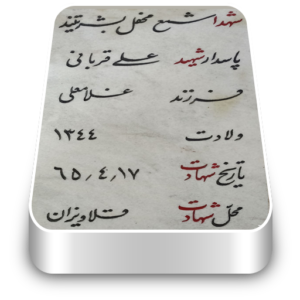 شهدا شمع محفل بشریتند
پاسدار شهید علی قربانی
فرزند غلامعلی
ولادت ۱۳۴۴
تاریخ شهادت ۶۵٫۴٫۱۷
محل شهادت قلاویزان